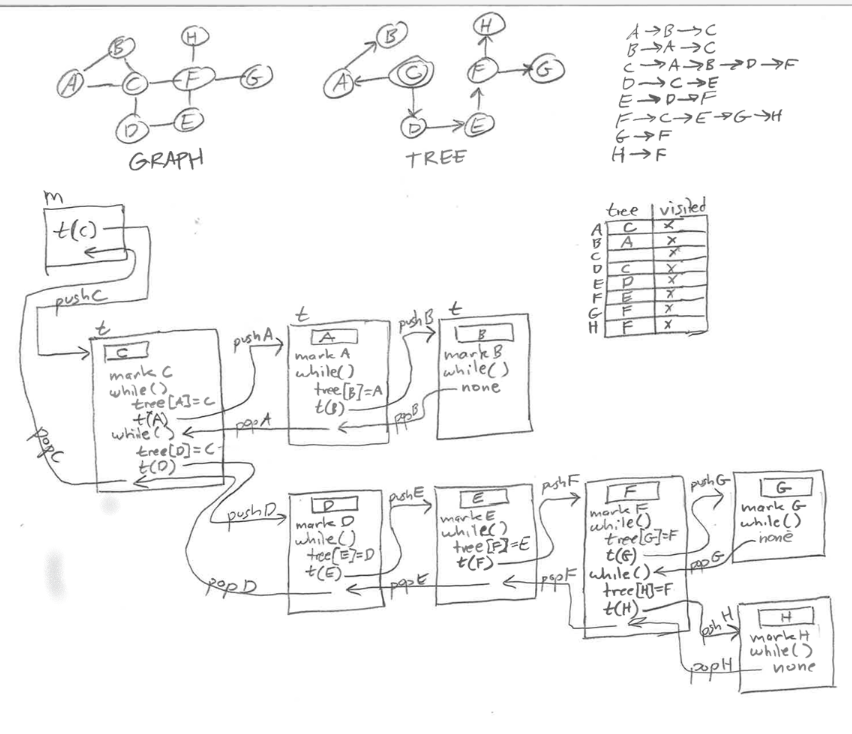 B
H
A
C
F
G
D
E
GRAPH
B
H
A
C
F
G
D
E
TREE
A→B→C
B→A→C
C→A→B→D→F
D→C→E
E→D→F
F→C→E→G→H
G→F
H→F
tree visited
A C x
B A x
C x
D C x
E D x
F E x
G F x
H F x
m
t(C)
pushC
popC
t
C
mark C
while()
tree[A]=C
t(A)
while()
tree[D]=C
t(D)
pushA
popA
t
A
mark A
while()
tree[B]=A
t(B)
pushB
popB
t
B
mark B
while()
none
pushD
popD
D
mark D
while()
tree[E]=D
t(E)
pushE
popE
E
mark E
while()
tree[F]=E
t(F)
pushF
popF
F
mark F
while()
tree[G]=F
t(G)
while()
tree[H]=F
t(H)
pushG
popG
G
mark G
while()
none
pushH
popH
H
mark H
while()
none